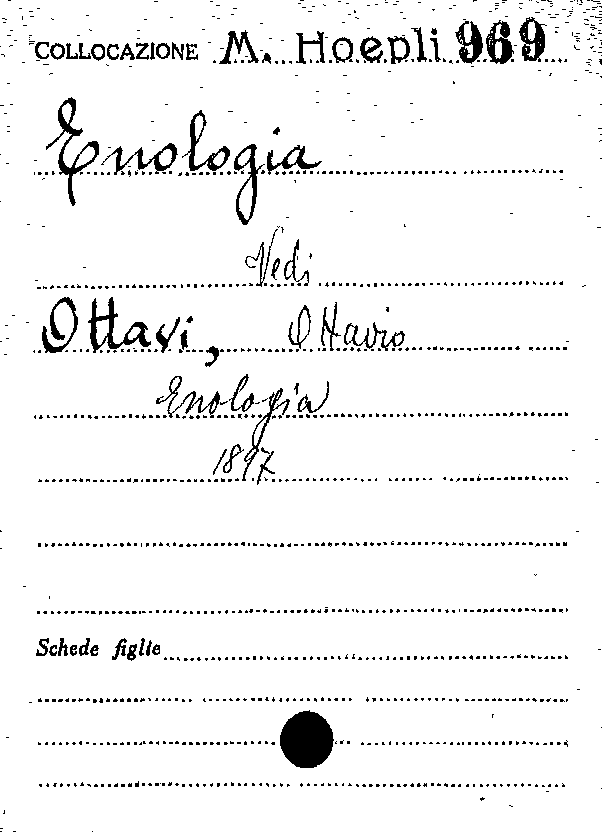 COLLOCAZIONE M. Hoepli 969
Enologia
Vedi
Ottavi, Ottavio
Enologia
1897
Schede figlie